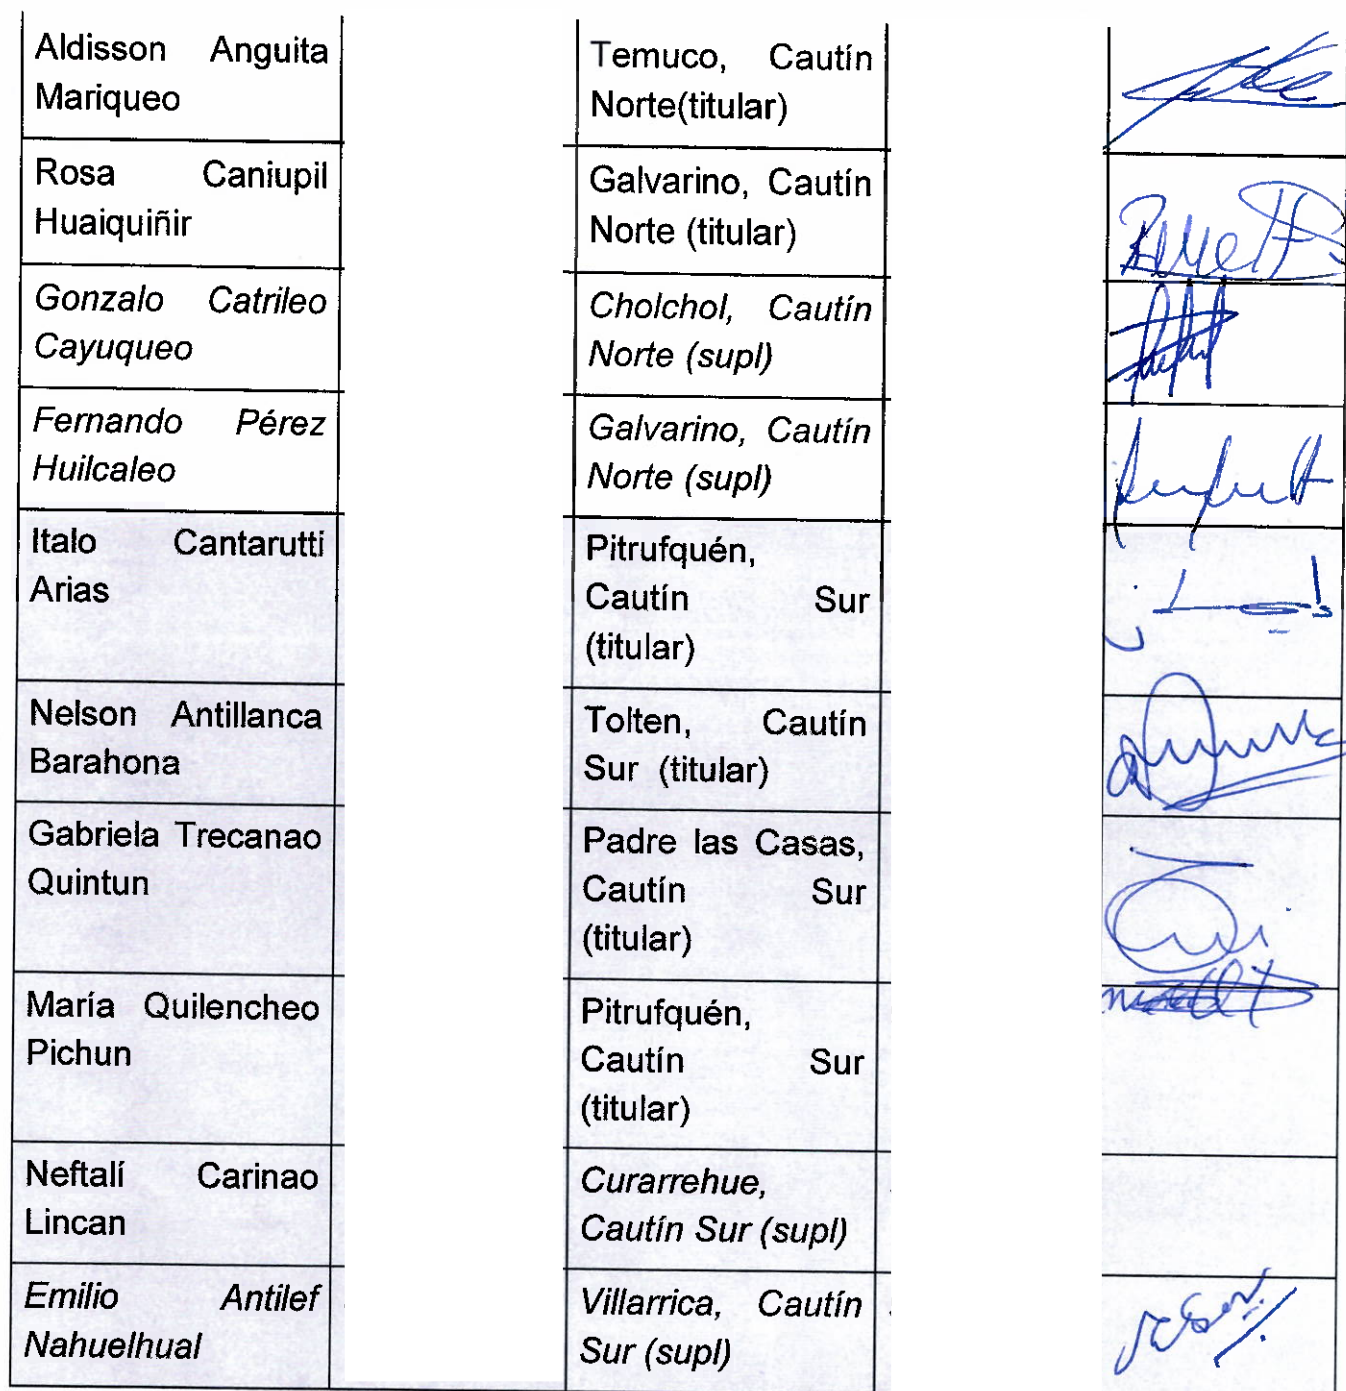 Aldisson Anguita
Mariqueo
Temuco, Cautín
Norte(titular)
Rosa Caniupil
Huaiquiñir
Galvarino, Cautín
Norte (titular)
Gonzalo Catrileo
Cayuqueo
Cholchol, Cautín
Norte (supl)
Fernando Pérez
Huilcaleo
Galvarino, Cautín
Norte (supl)
Italo Cantarutti
Arias
Pitrufquén,
Cautín Sur
(titular)
Nelson Antillanca
Barahona
Tolten, Cautín
Sur (titular)
Gabriela Trecanao
Quintun
Padre las Casas,
Cautín Sur
(titular)
María Quilencheo
Pichun
Pitrufquén,
Cautín Sur
(titular)
Neftalí Carinao
Lincan
Curarrehue,
Cautín Sur (supl)
Emilio Antilef
Nahuelhual
Villarrica, Cautín
Sur (supl)